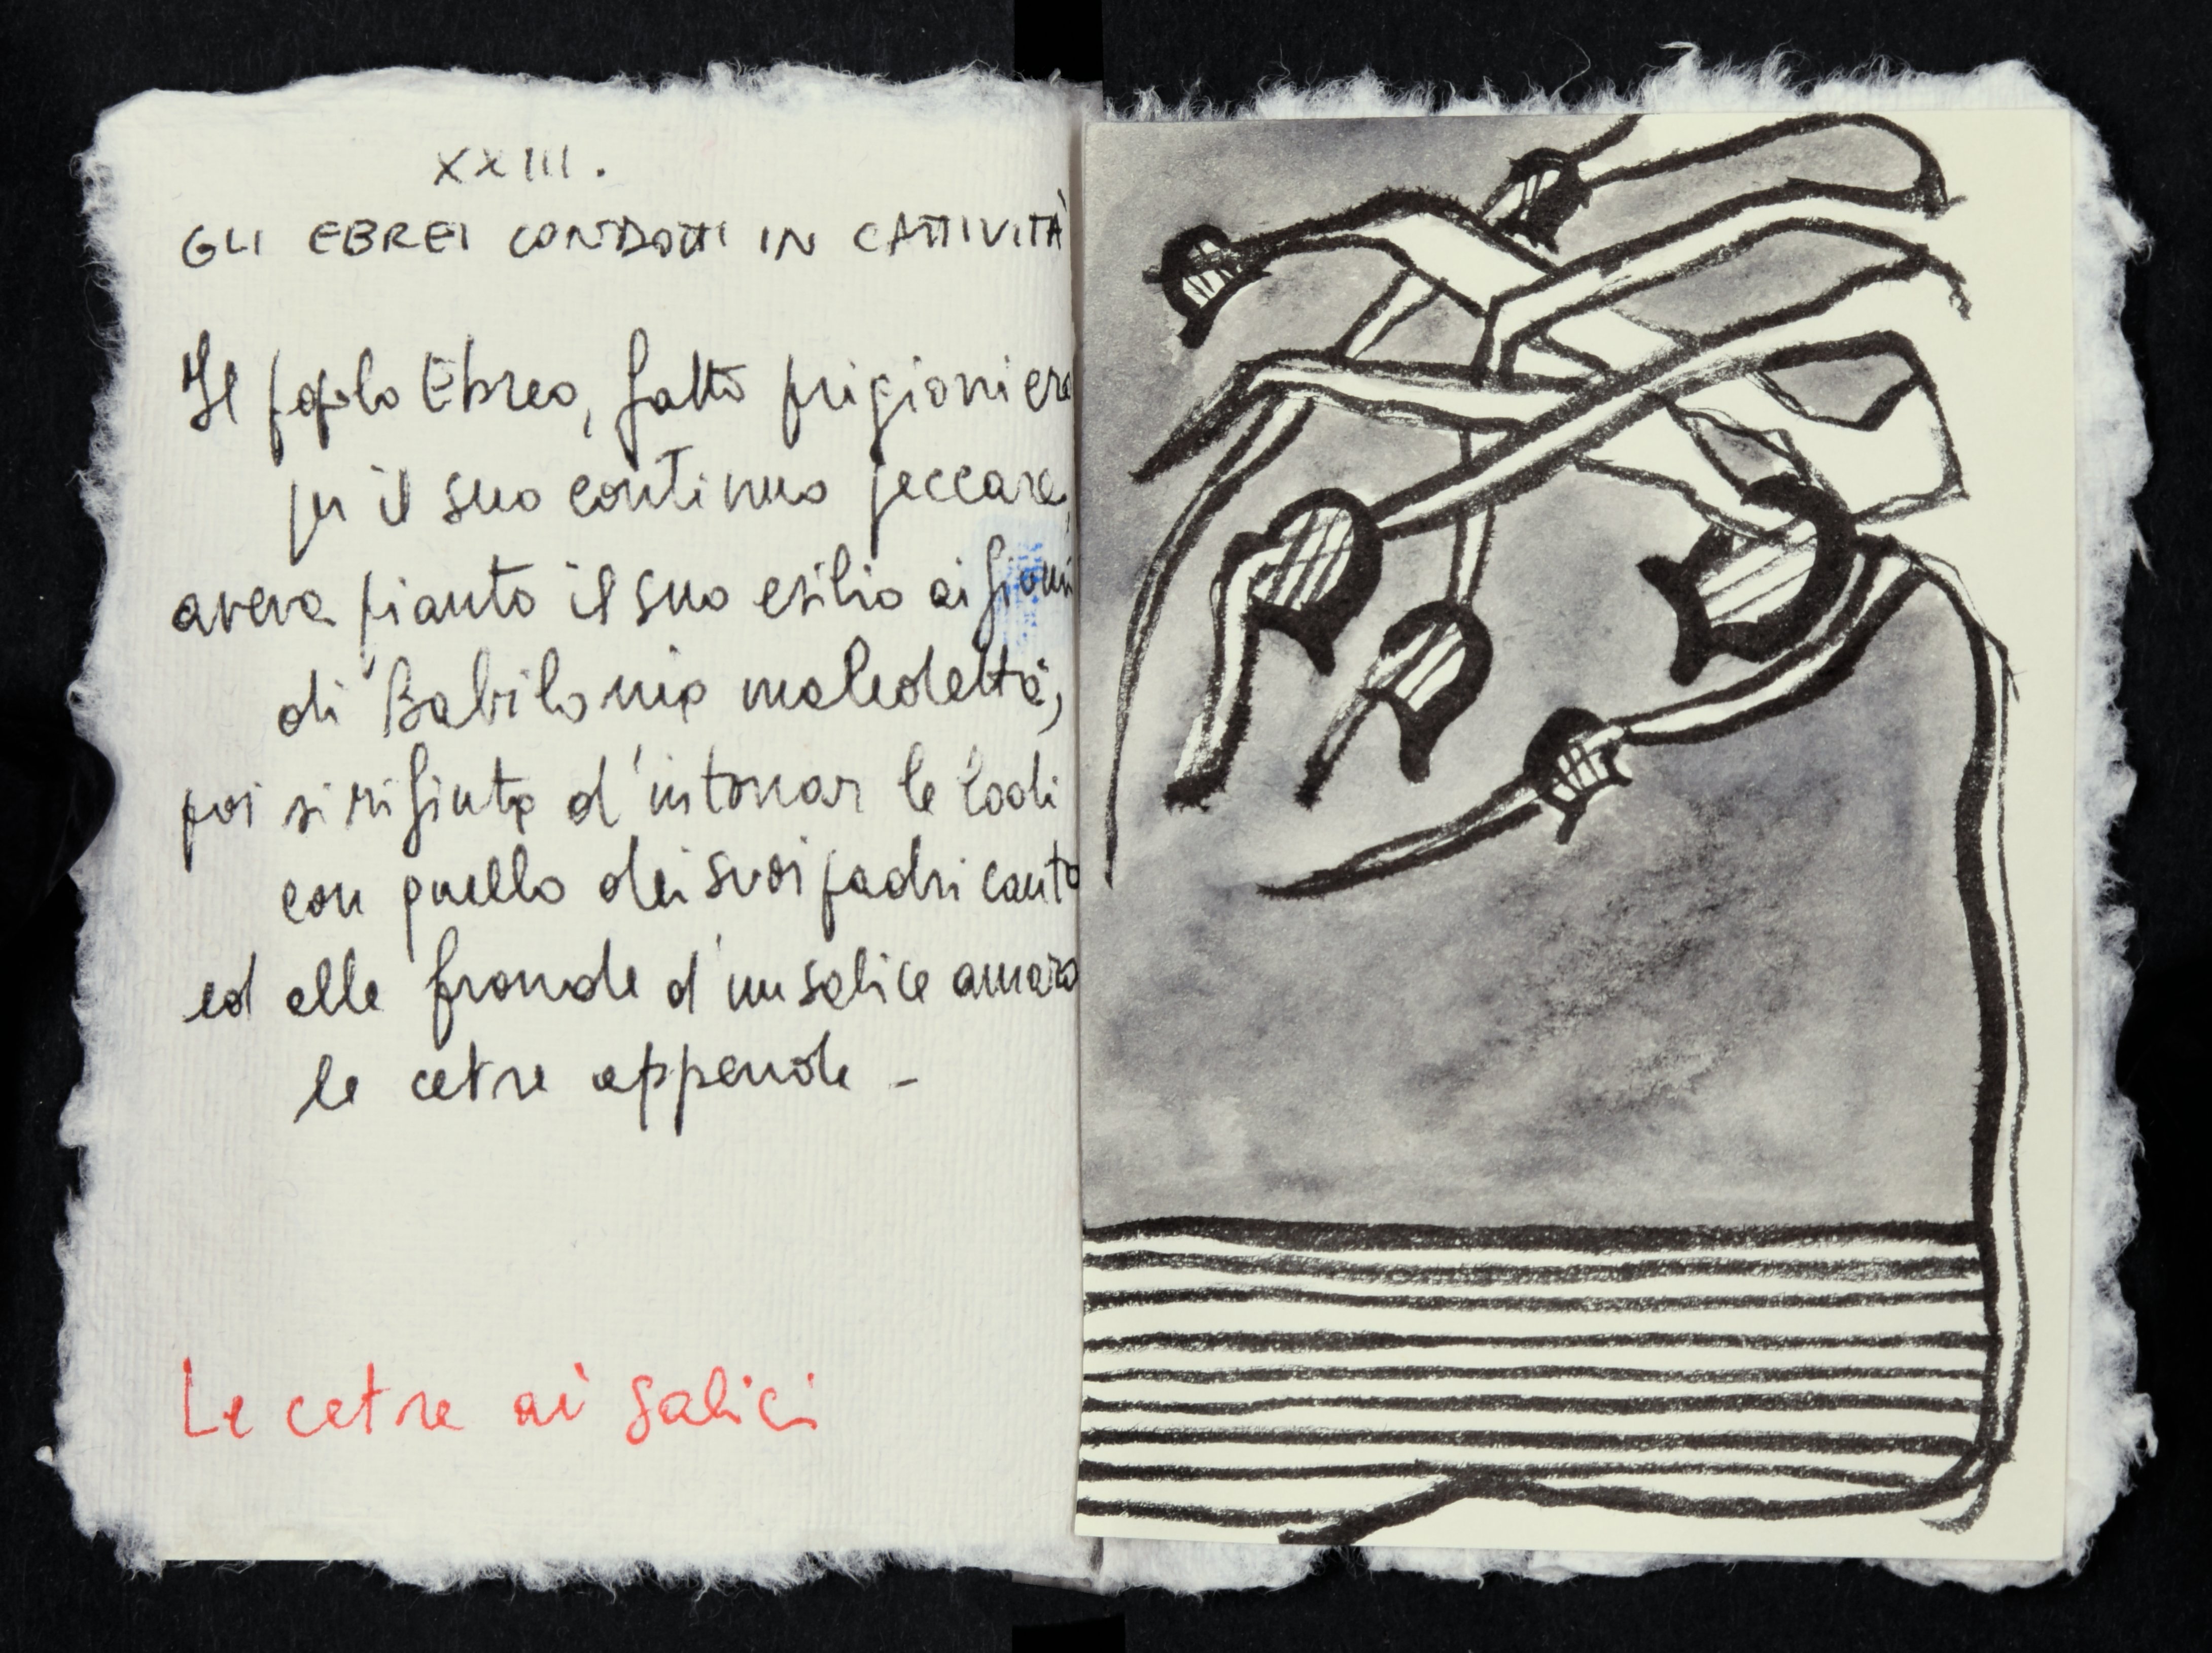 XXIII.
GLI EBREI CONDOTTI IN CATTIVITÀ
Il popolo Ebreo, fatto prigioniero
per il suo continuo peccare,
aveva pianto il suo esilio ai fiumi
di Babilonia maledetta;
poi si rifiuta d'intonar le lodi
con quello dei suoi padri canto
ed alle fronde d'un salice amaro
le cetre appende -
Le cetre ai salici